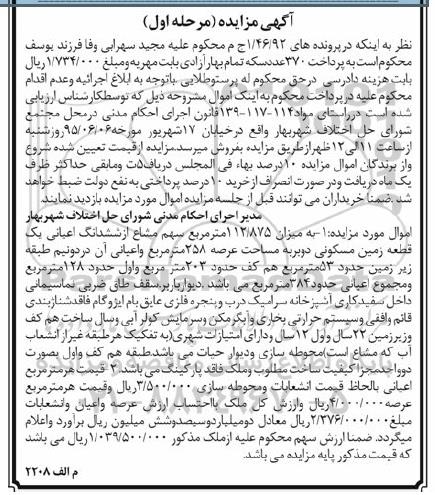 آگهی مزایده (مرحله اول)
نظر به اینکه در پرونده های ۱/۴۶/۹۲ج م محکوم علیه مجید سهرابی وفا فرزند یوسف
محکوم است به پرداخت ۳۷۰عدد سکه تمام بهار آزادی بابت مهریه و مبلغ ۱/۷۳۴/۰۰۰ریال
بابت هزینه دادرسی درحق محکوم له پرستو طلایی باتوجه به ابلاغ اجرائیه وعدم اقدام
محکوم علیه در پرداخت محکوم به اینک اموال مشروحه ذیل که توسط کارشناس ارزیابی
شده است در راستای مواد۱۱۴-۱۱۷-۱۳۹قانون اجرای احکام مدنی در محل مجتمع
شورای حل اختلاف شهر بهار واقع در خیابان ۱۷شهریور مورخه ۹۵/۰۶/۰۶روزشنبه
از ساعت ۱۱الی ۱۲ظهر از طریق مزایده بفروش میرسد.مزایده از قیمت تعیین شده شروع
واز برندگان اموال مزایده ۱۰درصد بهاء فی المجلس دریافت و مابقی حداکثر ظرف
یک ماه دریافت ودر صورت انصراف از خرید ۱۰درصد پرداختی به نفع دولت ضبط خواهد
شد .ضمنا خریداران می توانند قبل از جلسه مزایده اموال مورد مزایده بازدید نمایند.
مدیر اجرای احکام مدنی شورای حل اختلاف شهر بهار
اموال مورد مزایده:۱-به میزان ۱۱۲/۸۷۵مترمربع سهم مشاع از ششدانگ اعیانی یک
قطعه زمین مسکونی دوبر به مساحت عرصه ۲۵۸مترمربع واعیانی آن در دونیم طبقه
زیر زمین حدود ۵۳مترمربع هم کف حدود ۲۰۳متر مربع واول حدود ۱۲۸مترمربع
ومجموع عیانی حدود ۳۸۴متر مربع می باشد .دیوار باربر.سقف طاق ضربی نماسیمانی
داخل سفیدکاری آشپزخانه سرامیک درب و پنجره فلزی عایق بام ایزوگام فاقدشناژبندی
قائم وافقی وسیستم حرارتی بخاری وآبگرمکن وسرمایش کولر آبی وسال ساخت هم کف
وزیرزمین ۲۲سال واول ۱۲سال ودارای امتیازات شهری(به تفکیک هرطبقه غیر از انشعاب
آب که مشاع است)محوطه سازی ودیوار حیات می باشد.طبقه هم کف واول بصورت
دوواحد مجزا کیفیت ساخت مطلوب وملک فاقد پارکینگ می باشد.۲-قیمت هر مترمربع
اعیانی بالحاظ قیمت انشعابات ومحوطه سازی ۳/۵۰۰/۰۰۰ریال وقیمت هر مترمربع
عرصه ۴/۰۰۰/۰۰۰ریال وارزش کل ملک بااحتساب ارزش عرصه واعیان وانشعابات
مبلغ ۲/۳۷۶/۰۰۰/۰۰۰ریال معادل دومیلیاردوسیصدوشش میلیون ریال برآورد واعلام
میگردد. ضمنا ارزش سهم محکوم علیه از ملک مذکور ۱/۰۳۹/۵۰۰/۰۰۰ریال می باشد
که قیمت مذکور پایه مزایده می باشد.
م الف ۲۲۰۸